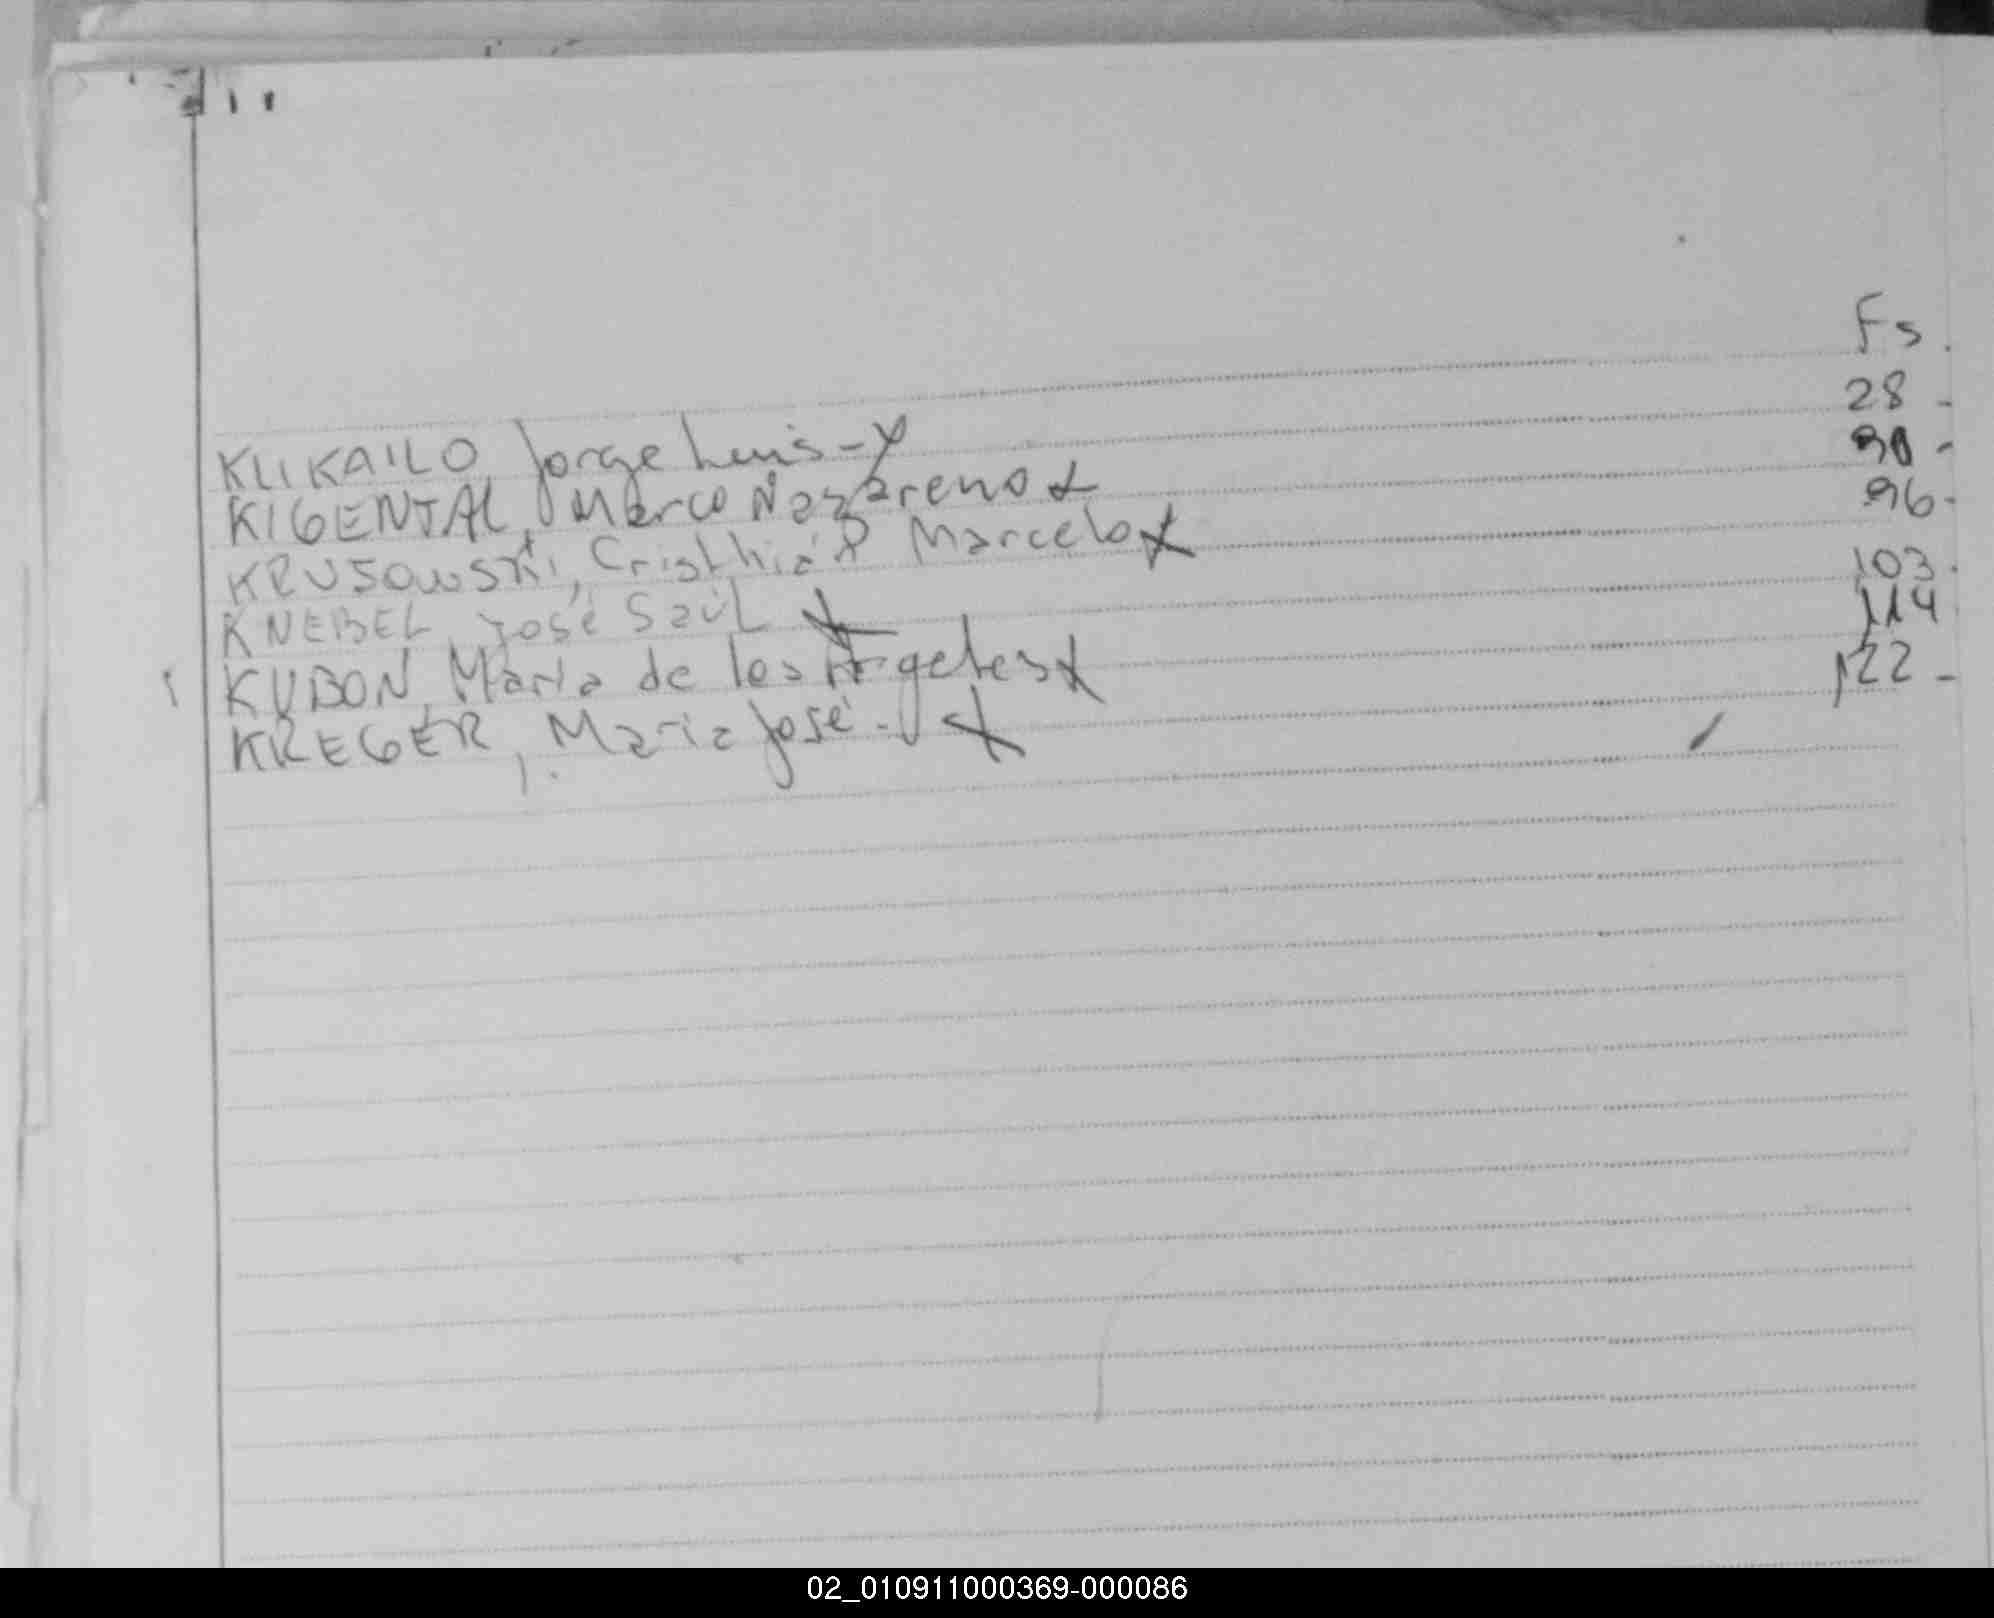 Fs.
KLIKAILO, Jorge Luis - 28 -
KIGENTAL, Marco Nazareno 90 -
KRUSOWSKI, Cristhian Marcelo 96 -
KNEBEL José Saúl 103 -
KUBON, María de los Angeles 114
KREGER, María José - 122 -
02_010911000369-000086